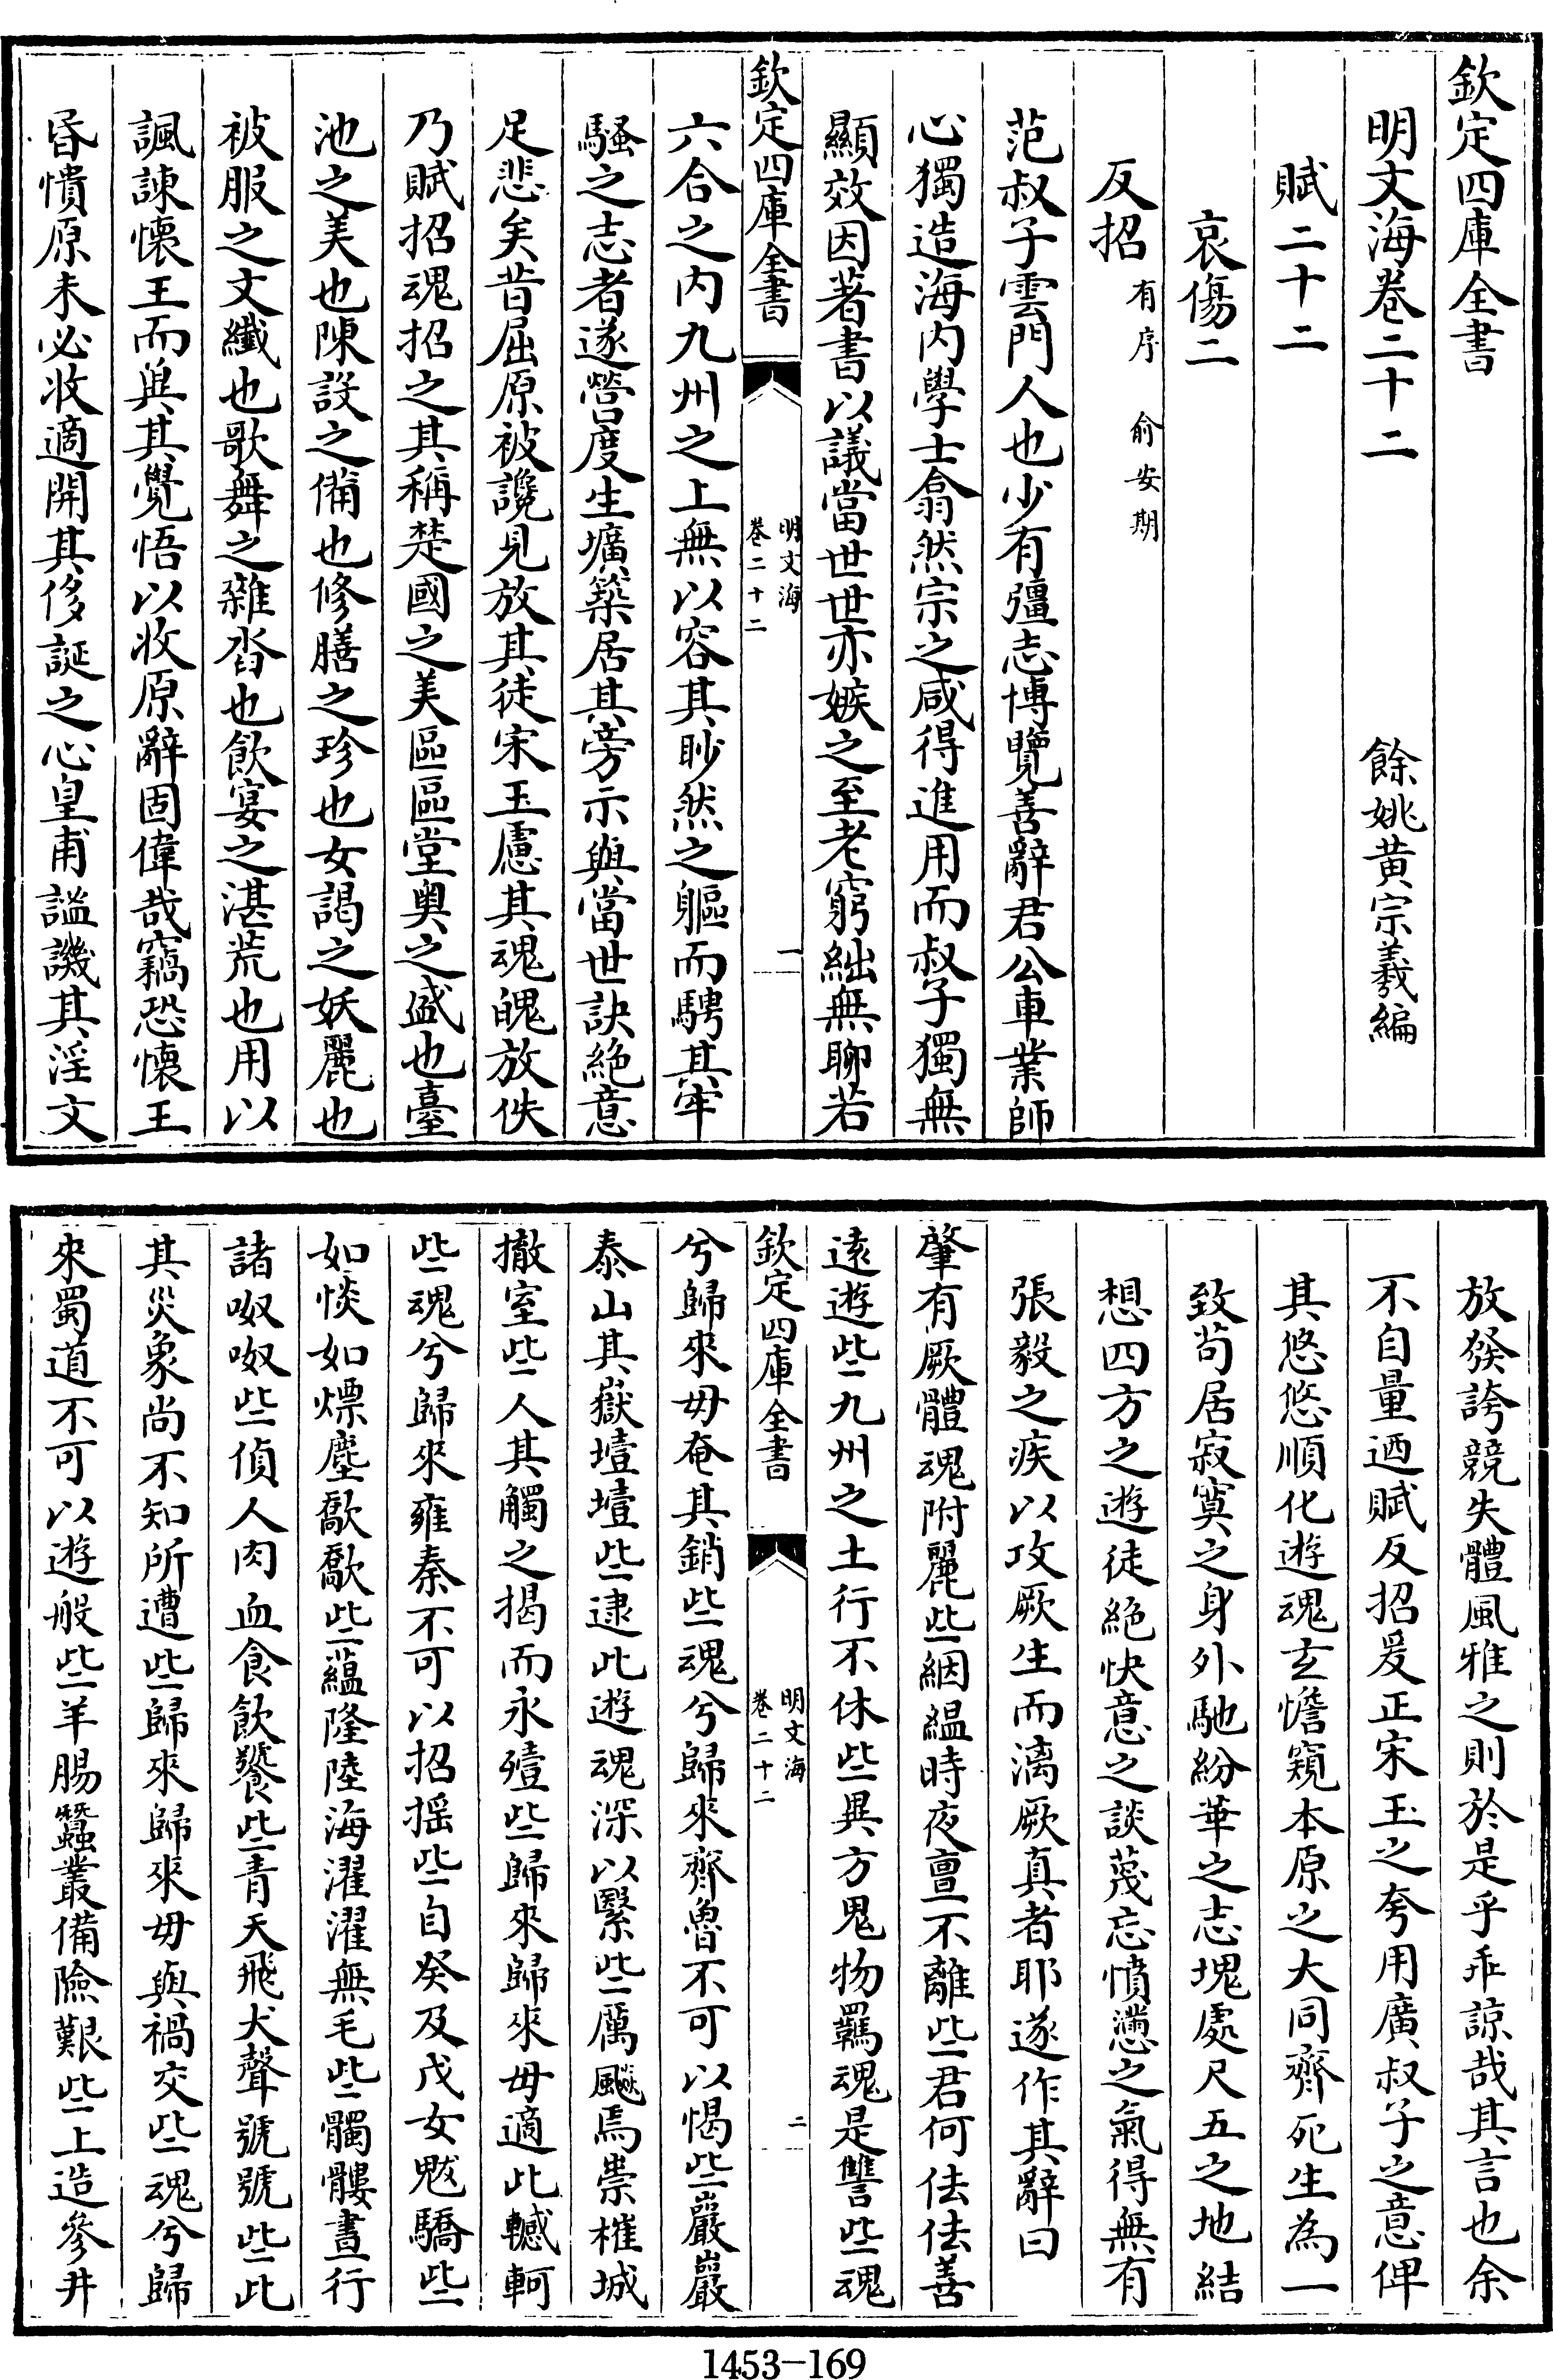 欽定四庫全書
明文海卷二十二
餘姚黃宗羲編
賦二十二
哀傷二
反招有序 俞安期
范叔子雲門人也少有彊志博覽善辭君公車業師
心獨造海内學士翕然宗之咸得進用而叔子獨無
顯效因著書以議當世世亦嫉之至老窮絀無聊若
欽定四庫全書
明文海
卷二十二
一
六合之内九州之上無以容其眇然之軀而騁其牢
騷之志者遂營度生壙築居其旁示與當世訣絶意
足悲矣昔屈原被讒見放其徒宋玉慮其魂魄放佚
乃賦招魂招之其稱楚國之美區區堂奥之盛也臺
池之美也陳設之備也修膳之珍也女謁之妖麗也
被服之文纖也歌舞之雜沓也飲宴之湛荒也用以
諷諫懷王而與其覺悟以收原辭固偉哉竊恐懷王
昏憒原未必收適開其侈誕之心皇甫謐譏其淫文
放發誇競失體風雅之則於是乎乖諒哉其言也余
不自量迺賦反招爰正宋玉之夸用廣叔子之意俾
其悠悠順化遊魂玄憺窺本原之大同齊死生為一
致苟居寂寞之身外馳紛華之志塊處尺五之地結
想四方之遊徒絶快意之談蔑忘憤懣之氣得無有
張毅之疾以攻厥生而漓厥真者耶遂作其辭曰
肇有厥體魂附麗些絪緼時夜亶不離些君何佉佉善
逺遊些九州之土行不休些異方鬼物羈魂是讐些魂
欽定四庫全書
明文海
卷二十二
二
兮歸來毋奄其銷些魂兮歸來齊魯不可以愒些巖巖
泰山其嶽壇壇些逮此遊魂深以繄些厲飈焉祟摧城
撤室些人其觸之揭而永殪些歸來歸來毋適此轗軻
些魂兮歸來雍秦不可以招摇些自癸及戊女鬽驕些
如惔如熛塵歊歊些藴隆陸海濯濯無毛些髑髏晝行
諸呶呶些偵人肉血食飲饕些青天飛犬聲號號些此
其災象尚不知所遭些歸來歸來毋與禍交些魂兮歸
來蜀道不可以遊般些羊腸蠶叢備險艱些上造參井
1453-169